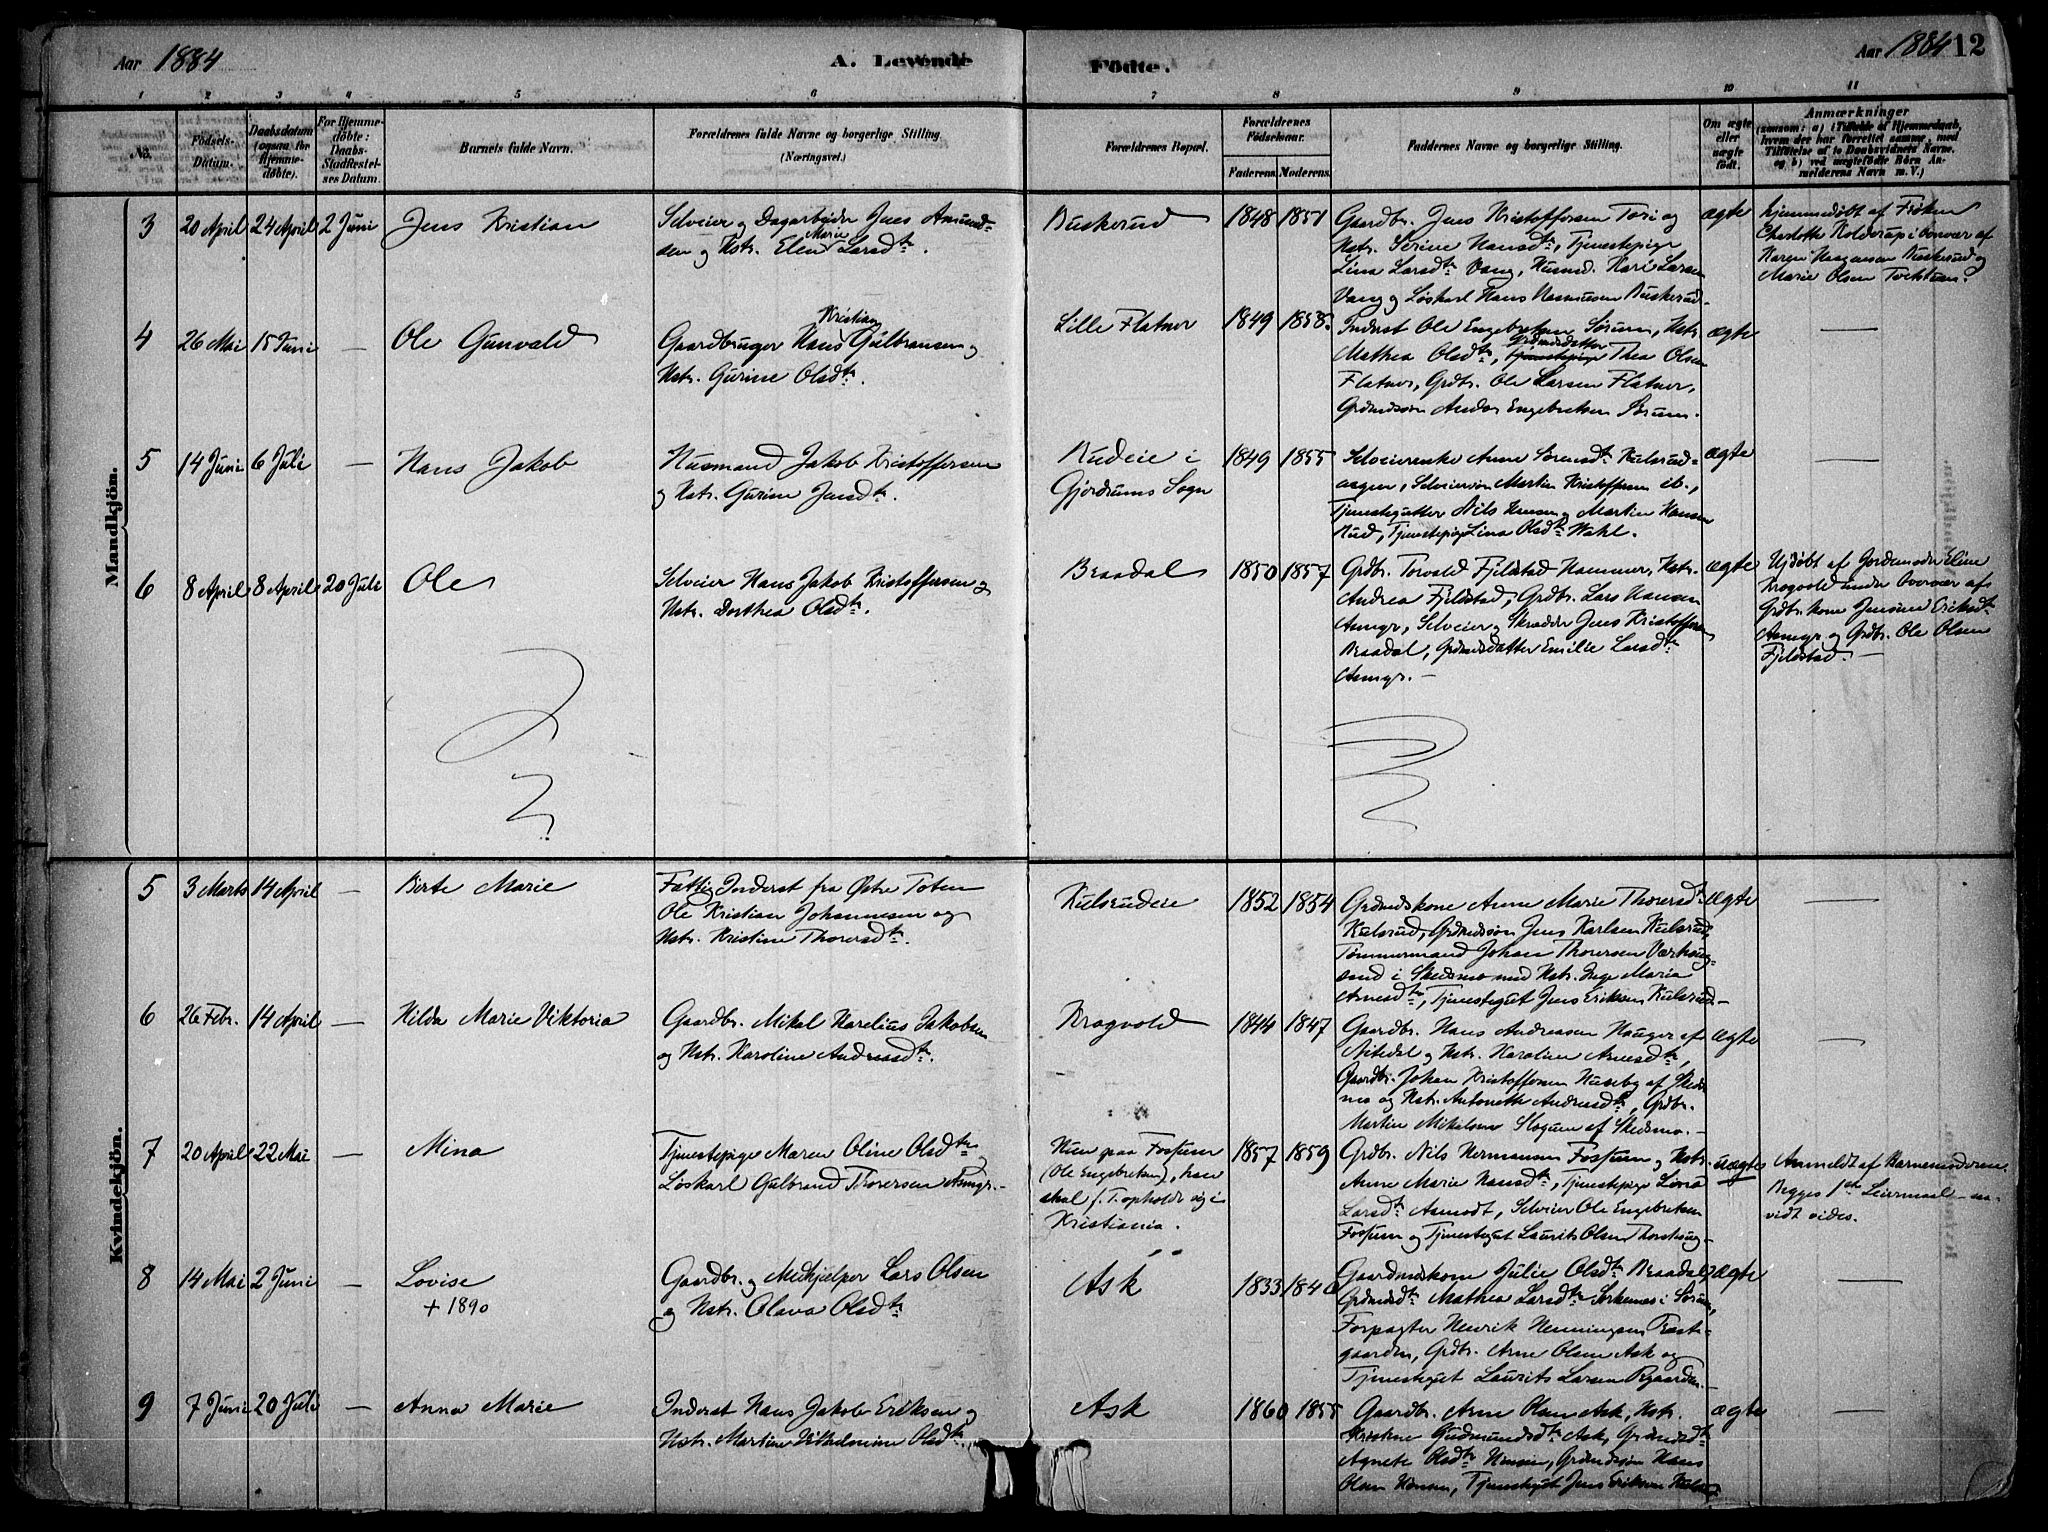 Aar 1884
A. Levende Födte.
Aar 1884 12
1 2 3 4 5 6 7 8 9 10 11
No.
Födsels-
Datum.
Daabsdatum
(ogsaa for
Hjemme-
döbte).
For Hjemme-
döbte:
Daabs-
Stadfæstel-
ses Datum.
Barnets fulde Navn.
Forældrenes fulde Navne og borgerlige Stilling.
(Næringsvei.)
Forældrenes Bopæl.
Forældrenes
Födselsaar.
Faderens. Moderens.
Faddernes Navne og borgerlige Stilling.
Om ægte
eller
uægte
födt.
Anmærkninger
(saasom: a) i Tilfælde af Hjemmedaab,
hvem der har forrettet samme, med
Tilföielse af to Daabsvidners Navne,
og b) ved uægtefödte Börn An-
melderens Navn m. V.)
Mandkjön.
3 20 April 24 April 2 Juni Jens Kristian
Selveier og Dagarbeider Jens Amund-
Marie
sen og Hstr. Elen Larsdtr.
Buskerud 1848 1851
Gaardbr. Jens Kristoffersen Tori og
Hstr. Serine Hansdtr, Tjenestepige
Lina Larsdtr Vang, Husmd. Kari Larsen
Vang og Løskarl Hans Rasmussen Buskerud
ægte
hjemmedøbt af Frøken
Charlotte Kolderup i Overvær af
Karen Rasmussen Buskerud og
Marie Olsen
4 26 Mai 15 Juni — Ole Gunvald
Kristian
Gaardbruger Hans Gulbransen og
Hstr. Gurine Olsdtr.
Lille Flatner 1849 1858
Inderst Ole Engebretsen Sørum, Hstr.
Grdmdsdatter
Mathea Olsdtr, Tjenestepige Thea Olsen
Flatner, Grdbr. Ole Larsen Flatner,
Grdmdssøn Anders Engebretsen Sørum.
ægte —
5 14 Juni 6 Juli — Hans Jakob
Husmand Jakob Kristoffersen
og Hstr. Gurine Jensdtr.
Rudeie i
Gjerdrums Sogn
1849 1855
Selveierenke Anne Sørensdtr Kulsrud-
aagen, Selveiersøn Martin Kristoffersen ib.,
Tjenestegutter Nils Hansen og Martin Hansen
Rud, Tjenestepige Lina Olsdtr Wahl.
ægte —
6 8 April 8 April 20 Juli Ole
Selveier Hans Jakob Kristoffersen og
Hstr. Dorthea Olsdtr.
Braadal 1850 1857
Grdbr. Torvald Fjeldstad Hammer, Hstr.
Andrea Fjeldstad, Grdbr. Lars Hansen
Asmyr, Selveier og Skrædder Jens Kristoffersen
Braadal, Grdmdsdatter Emilie Larsdtr
Asmyr. —
ægte
Hjdøbt af Jordemoder Eline
Krogvold under Overvær af
Grdbr.kone Jensine Eriksdtr
Asmyr og Grdbr. Ole Olsen
Fjeldstad. —
Kvindekjön.
5 3 Marts 14 April — Berte Marie
Fattig Inderst fra Østre Toten
Ole Kristian Johannesen og
Hstr. Kristine Thoresdtr.
Kulsrudeie 1852 1854
Grdmdskone Anne Marie Thoresdtr
Kulsrud, Grdmdssøn Jens Karlsen Kulsrud,
Tømmermand Johan Thoresen Værhaug-
sand i Skedsmo med Hstr. Inge Marie
Arnesdtr, Tjenestegut Jens Eriksen Kulsrud
ægte —
6 26 Febr. 14 April — Hilda Marie Viktoria
Gaardbr. Mikal Karelius Jakobsen
og Hstr. Karoline Andreasdtr.
Krogvold 1844 1847
Gaardbr. Hans Andreasen Hauger af
Nitedal og Hstr. Karoline Arnesdtr,
Gaardbr. Johan Kristoffersen Huseby af Skeds-
mo og Hstr. Antonette Andreasdtr, Grdbr.
Martin Mikalsen Slogum af Skedsmo. —
ægte —
7 20 April 22 Mai — Mina
Tjenestepige Maren Oline Olsdtr og
Løskarl Gulbrand Thoresen Asmyr. —
Hun paa Fossum
(Ole Engebretsen), han
skal f.T. opholde sig i
Kristiania.
1857 1859
Grdbr. Nils Hermansen Fossum og Hstr.
Anne Marie Hansdtr, Tjenestepige Lina
Larsdtr Asmodt, Selveier Ole Engebretsen
Fossum og Tjenestegut Laurits Olsen Thorshaug
uægte
Anmeldt af Barnemoderen.
Begges 1ste Leiermaal saa-
vidt vides.
8 14 Mai 2 Juni — Lovise
+ 1890
Gaardbr. og Medhjelper Lars Olsen
og Hstr. Olava Olsdtr
Ask 1833 1840
Gaardmdskone Julie Olsdtr Braadal,
Grdmdsdtr Mathea Larsdtr i Sørum,
Forpagter Henrik Henningsen Præste-
gaarden, Grdbr. Arne Olsen Ask og
Tjenestegut Laurits Larsen
ægte
9 7 Juni 20 Juli — Anna Marie
Inderst Hans Jakob Eriksen og
Hstr. Martine Vilhelmine Olsdtr
Ask 1860 1855
Gaardbr. Arne Olsen Ask, Hstr.
Kristine Gudmundsdtr Ask, Grdmdsdtr
Agnete Olsdtr, Grdmdssøn Hans
Olsen, Tjenestegut Jens Eriksen
ægte —